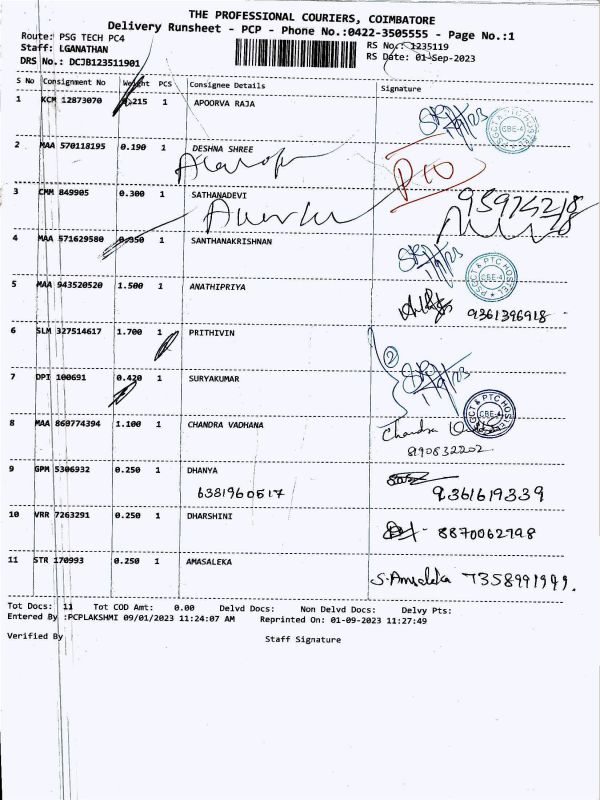 THE PROFESSIONAL COURIERS, COIMBATORE
Delivery Runsheet - PCP - Phone No.:0422-3505555 - Page No.:1
Route: PSG TECH PC4
RS No.: 1235119
Staff: LGANATHAN
RS Date: 01-Sep-2023
DRS No.: DCJB123511901
S No Consignment No Weight PCS Consignee Details Signature
1 KCM 12873070 0.215 1 APOORVA RAJA
PSGCT & PTC HOSTEL CBE-4
2 MAA 570118195 0.190 1 DESHNA SHREE
PTO
3 CMM 849905 0.300 1 SATHANADEVI
4 MAA 571629580 0.350 1 SANTHANAKRISHNAN
PSGCT & PTC HOSTEL CBE-4
5 MAA 943520520 1.500 1 ANATHIPRIYA
9361396918
6 SLM 327514617 1.700 1 PRITHIVIN
2
7 DPI 100691 0.420 1 SURYAKUMAR
PSGCT & PTC HOSTEL CBE-4
8 MAA 860774394 1.100 1 CHANDRA VADHANA
Chandra
9 GPM 5306932 0.250 1 DHANYA
6381960517 9361619339
10 VRR 7263291 0.250 1 DHARSHINI
8870062798
11 STR 170993 0.250 1 AMASALEKA
S. Amsaleka 7358991999.
Tot Docs: 11 Tot COD Amt: 0.00 Delvd Docs: Non Delvd Docs: Delvy Pts:
Entered By :PCPLAKSHMI 09/01/2023 11:24:07 AM Reprinted On: 01-09-2023 11:27:49
Verified By Staff Signature